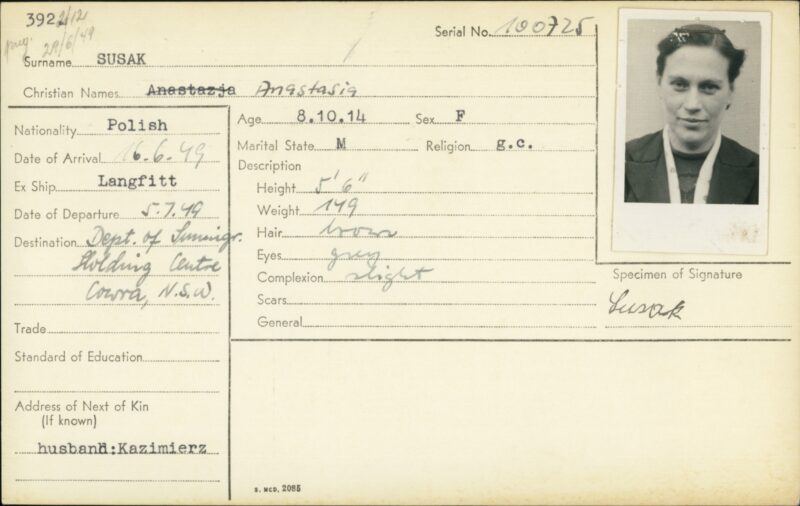 392 2/12
29/6/49
Serial No. 100725
Surname SUSAK
Christian Names Anastazja Anastasia
Nationality Polish
Date of Arrival 16.6.49
Ex Ship Langfitt
Date of Departure 5.7.49
Destination Dept. of Immigr.
Holding Centre
Cowra, N.S.W.
Trade
Standard of Education
Address of Next of Kin
(If known)
husband:Kazimierz
Age 8.10.14 Sex F
Marital State M Religion g.c.
Description
Height 5'6"
Weight 149
Hair brown
Eyes grey
Complexion slight
Scars
General
Specimen of Signature
Susak
S. MCD. 2085